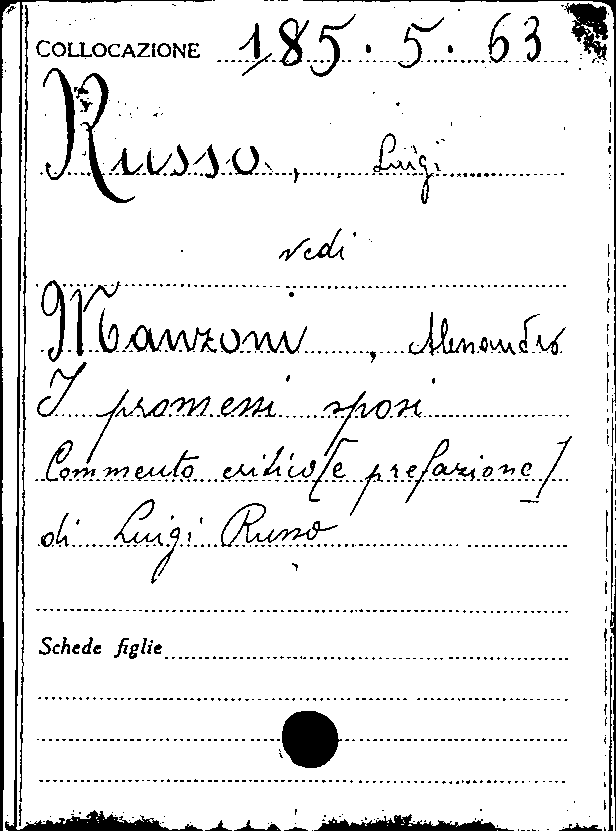 COLLOCAZIONE 185.5.63
Russo, Luigi
vedi
Manzoni, Alessandro
I promessi sposi
Commento critico [e prefazione]
di Luigi Russo
Schede figlie